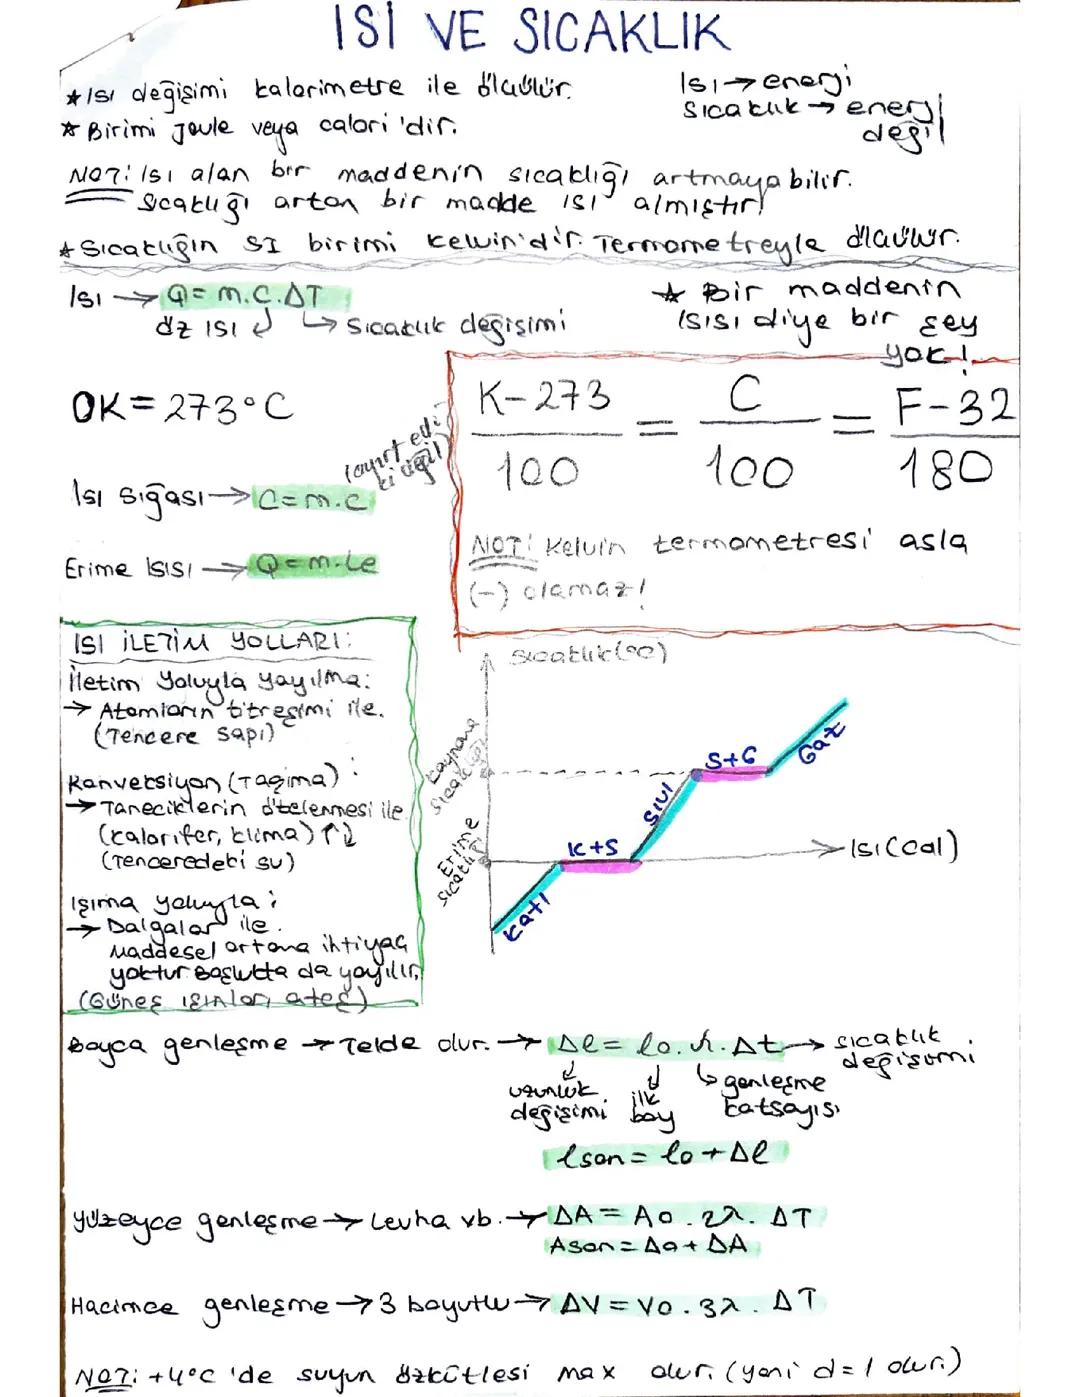 ISI VE SICAKLIK
★ Isı değişimi kalorimetre ile ölçülür.
★ Birimi Joule veya calori 'dir.
Isı → enerji
Sıcaklık → enerji
değil
NOT: Isı alan bir maddenin sıcaklığı artmayabilir.
Sıcaklığı artan bir madde ısı almıştır!
★ Sıcaklığın SI birimi kelwin'dir. Termometreyle ölçülür.
Isı → Q = m.C.ΔT
öz ısı
↳ Sıcaklık değişimi
★ Bir maddenin
ısısı diye bir şey
yok!
0K = 273°C
K-273 / 100 = C / 100 = F-32 / 180
(ayırt edi
ci değil)
Isı sığası → C = m.c
Erime Isısı → Q = m.Le
NOT: Kelvin termometresi asla
(-) olamaz!
ISI İLETİM YOLLARI:
İletim Yoluyla yayılma:
→ Atomların titreşimi ile.
(Tencere sapı)
Konveksiyon (Taşıma) :
→ Taneciklerin ötelenmesi ile
(kalorifer, klima) ↑↓
(Tenceredeki su)
Işıma yoluyla :
→ Dalgalar ile.
Maddesel ortama ihtiyaç
yoktur. Boşlukta da yayılır.
(Güneş ışınları, ateş)
Sıcaklık (°C)
Kaynama
sıcaklığı
Erime
sıcaklığı
Katı
K+S
Sıvı
S+G
Gaz
Isı (cal)
Boyca genleşme → Telde olur. → Δl = lo. λ. Δt → sıcaklık
değişimi
uzunluk
değişimi
ilk
boy
↳ genleşme
katsayısı
lson = lo + Δl
Yüzeyce genleşme → Levha vb. → ΔA = Ao . 2λ. ΔT
Ason = Δa + ΔA
Hacimce genleşme → 3 boyutlu → ΔV = Vo . 3λ . ΔT
NOT: +4°C 'de suyun özkütlesi max olur. (yani d = 1 olur.)